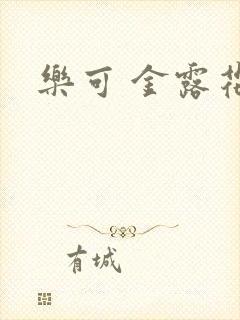 樂可 金露
有城